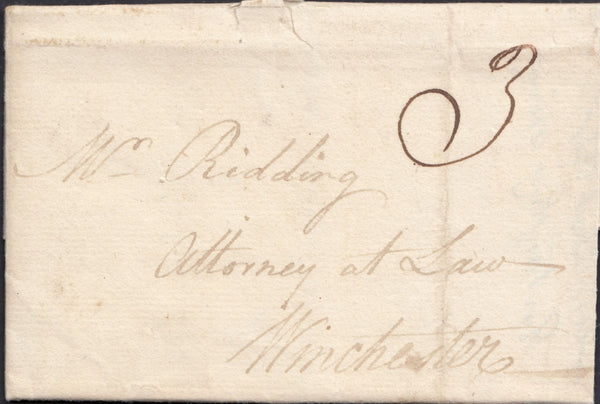 3
Mr. Ridding
Attorney at Law
Winchester